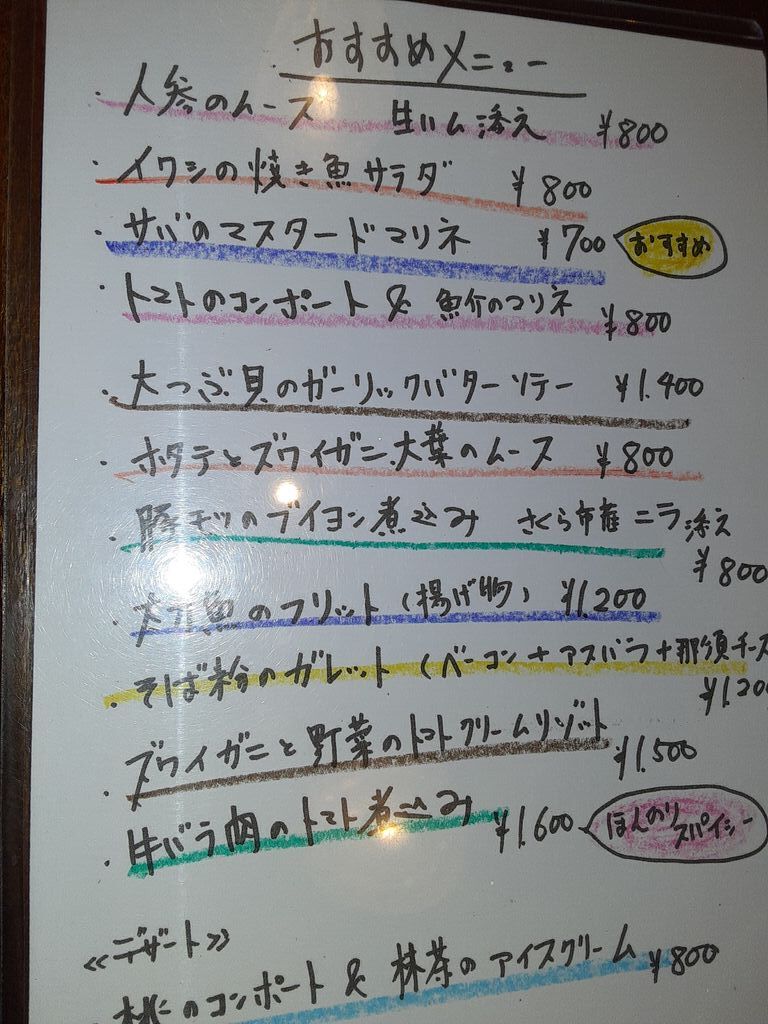 おすすめメニュー
・人参のムース 生ハム添え ¥800
・イワシの焼き魚サラダ ¥800
・サバのマスタードマリネ ¥700 おすすめ
・トマトのコンポート & 魚介のマリネ ¥800
・大つぶ貝のガーリックバターソテー ¥1.400
・ホタテとズワイガニ大葉のムース ¥800
・豚モツのブイヨン煮込み さくら市産ニラ添え
¥800
・太刀魚のフリット(揚げ物) ¥1.200
・そば粉のガレット(ベーコン+アスパラ+那須チーズ
¥1.200
・ズワイガニと野菜のトマトクリームリゾット ¥1.500
・牛バラ肉のトマト煮込み ¥1.600 ほんのりスパイシー
≪デザート≫
・桃のコンポート & 抹茶のアイスクリーム ¥800